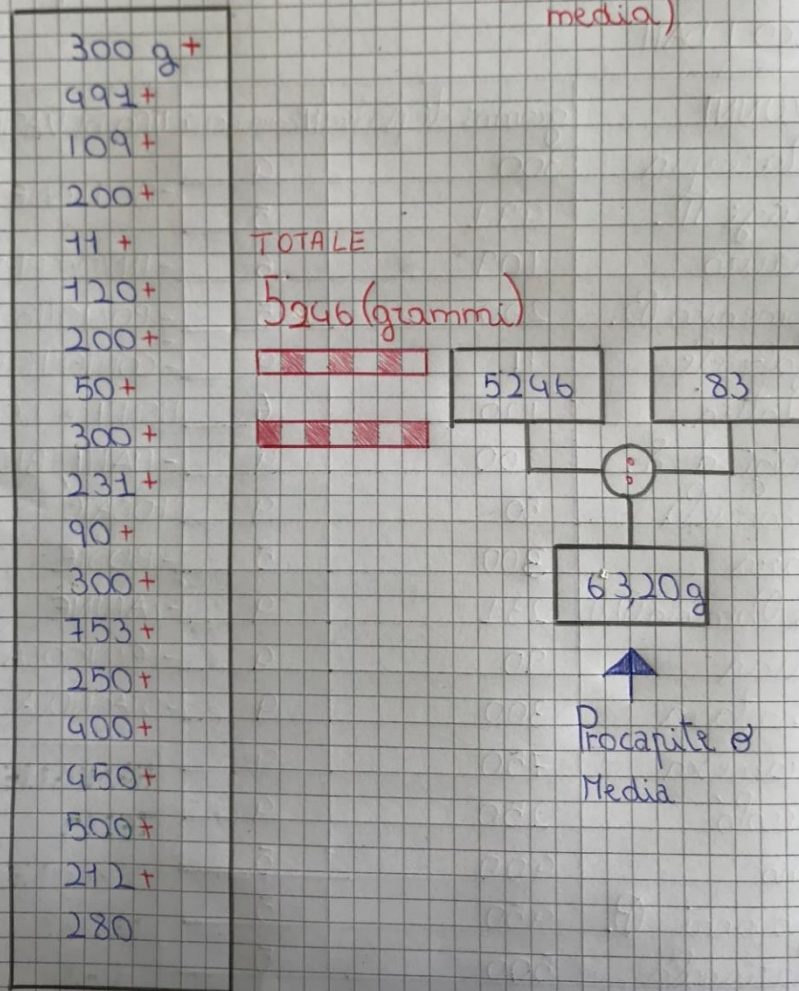 media)
300 g+
491+
109+
200+
11+
120+
200+
50+
300+
231+
90+
300+
753+
250+
400+
450+
500+
212+
280
TOTALE
5246 (grammi)
5246
83
:
63,20g
Procapite o
Media